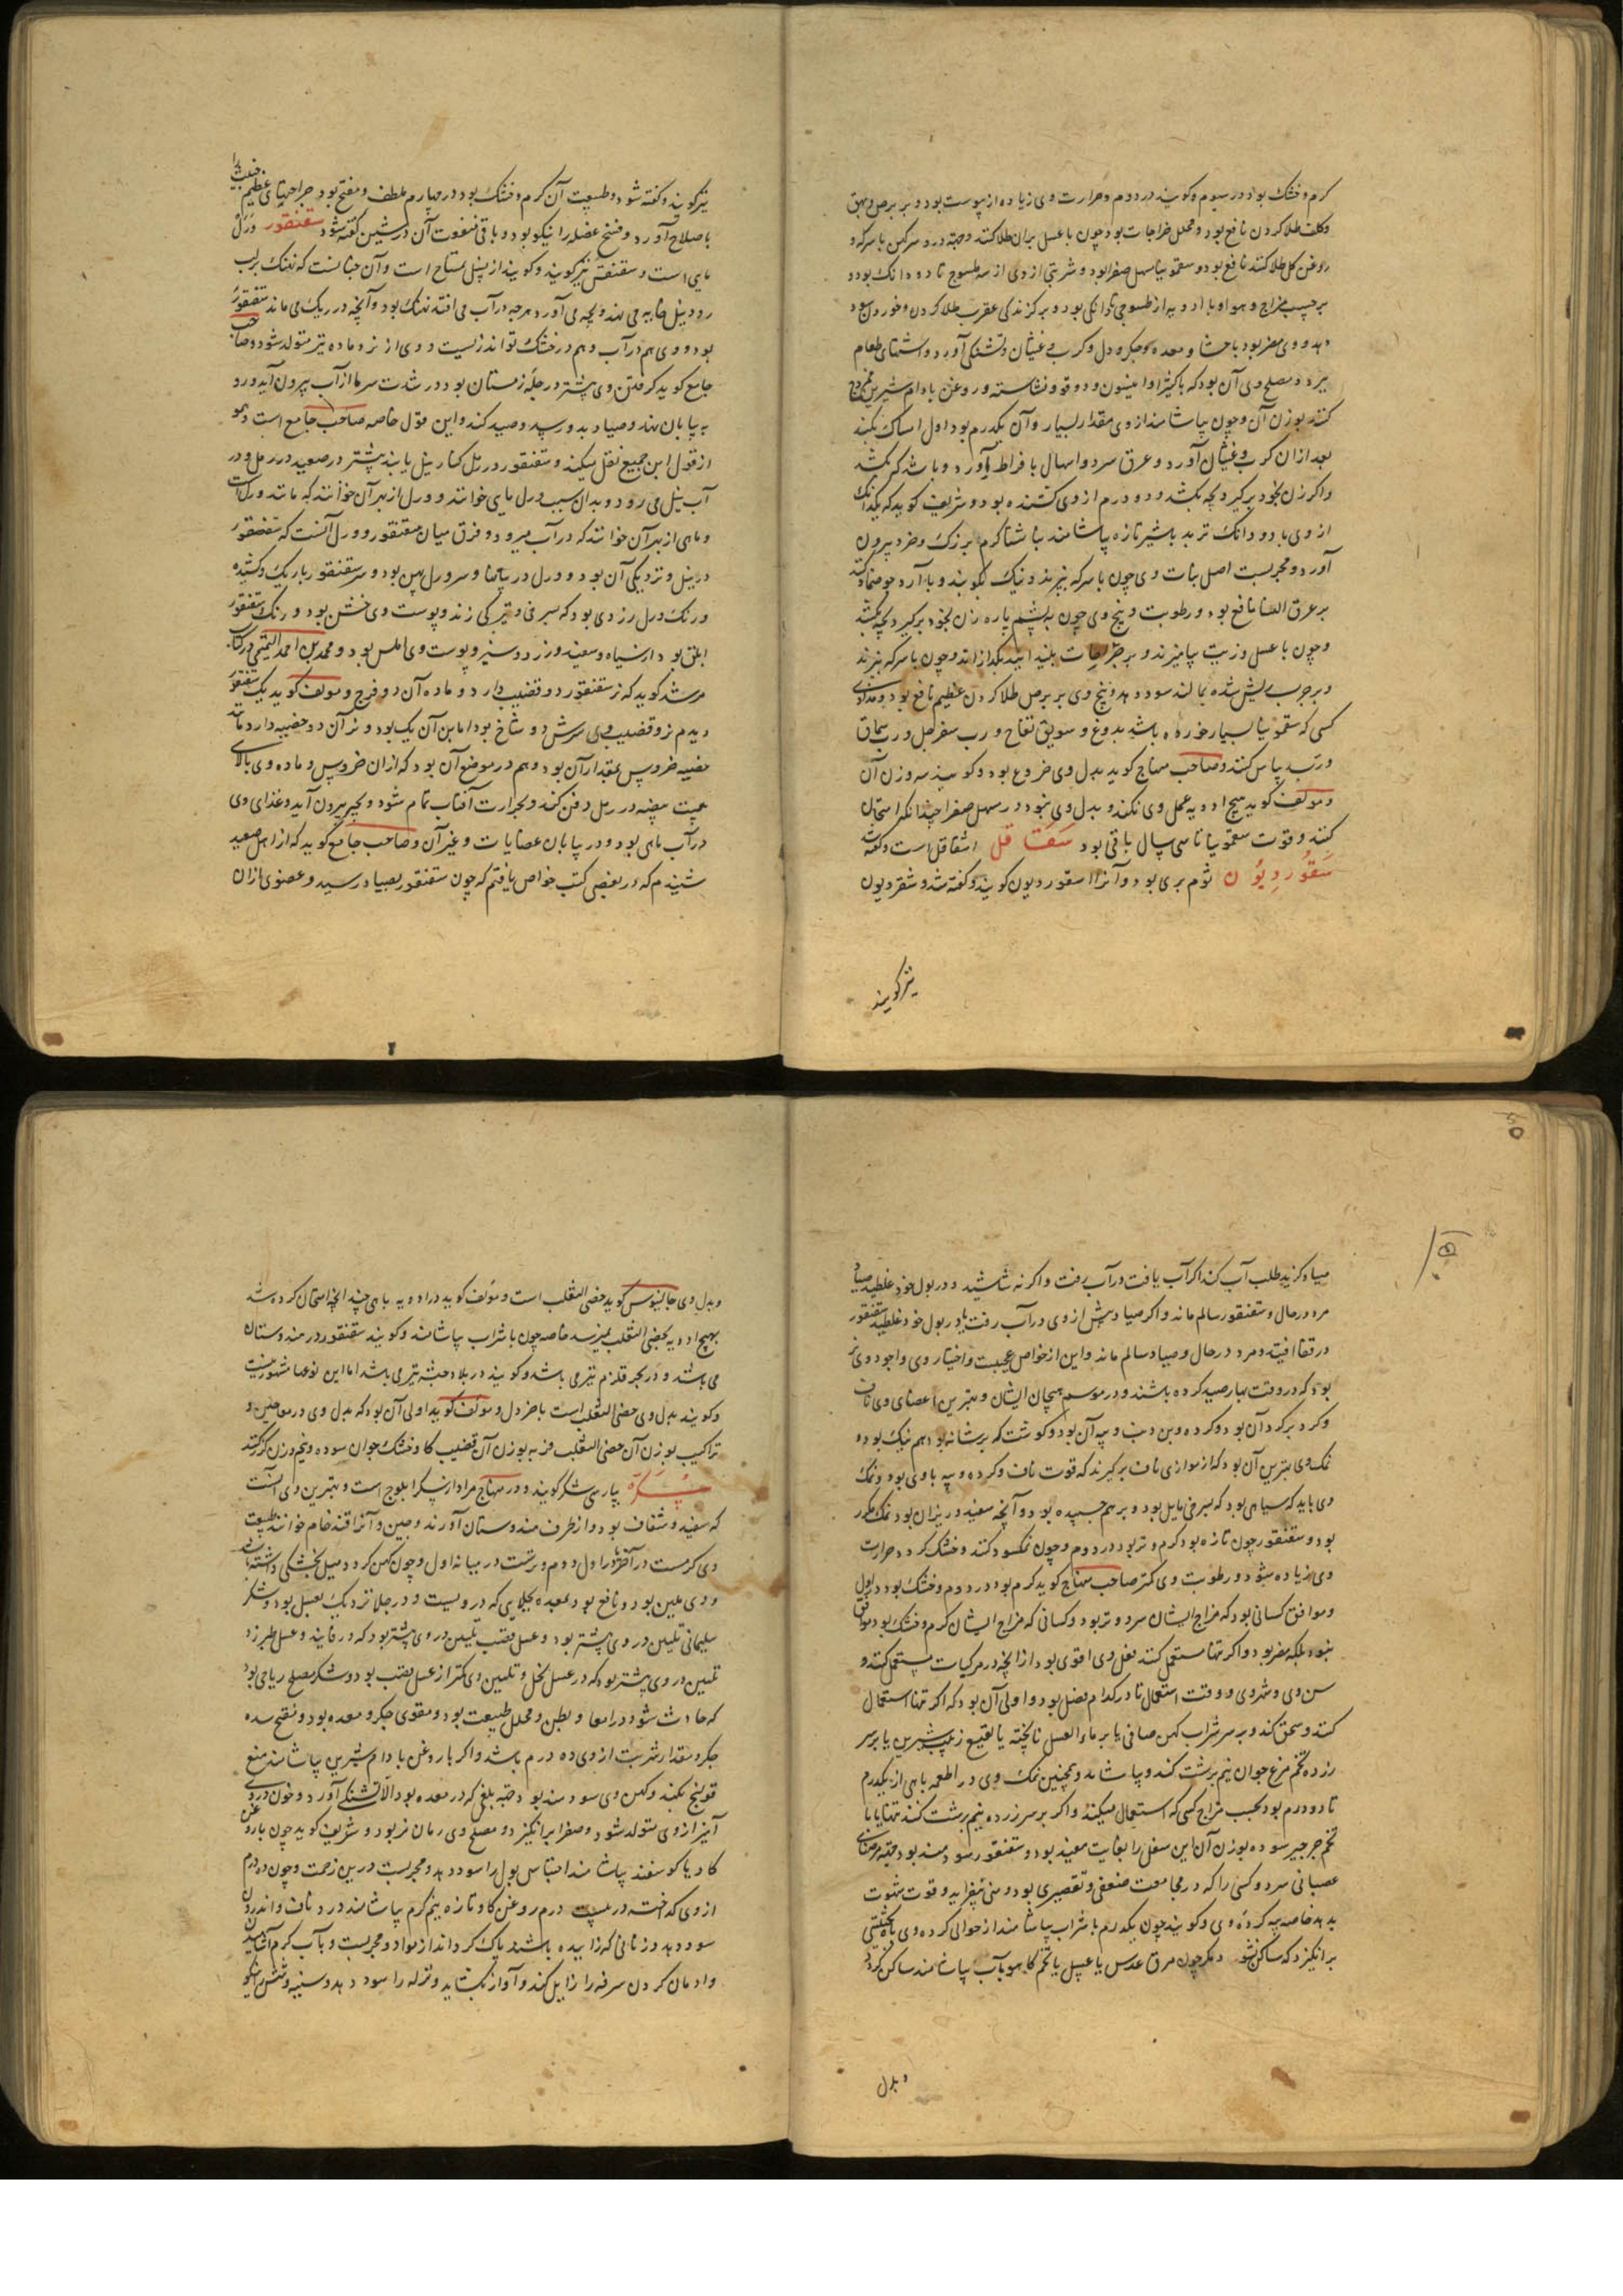 کرم و خشک بود در سیوم و کویند در دوم و حرارت وی زیاده از پوست بود و بر برص و بهق
و کلف طلا کردن نافع بود و محلل خراجات بود چون با عسل بران طلا کنند و جبه در و سرکهن با سرکه و
روغن کل طلا کنند نافع بود و سقمونیا مسهل صفرا بود و شربتی از وی از سه طسوج تا دو دانک بود و
بر حسب مزاج و هوا و با ادویه از طسوجی تا دانکی بود و بر کزندکی عقرب طلا کردن و خوردن سود
دهد و وی مضر بود باحشا و معده و جکر و دل و کرب و غیثان و تشنکی آورد و اشتهای طعام
ببرد و مصلح وی آن بود که با کثیرا و انیسون و دوقو و نشاسته و روغن بادام شیرین
کنند بوزن آن و چون بیاشامند از وی مقدار بسیار و آن یکدرم بود اول امساک بکند
بعد ازان کرب و غیثان آورد و عرق سرد و اسهال با فراط آورد و باشد که بکشد
و اکر زن بخود برکیرد بچه بکشد و دو درم از وی کشنده بود و شریف کوید که یکدانک
از وی با دو دانک تربد با شیر تازه بیاشامند بناشتا کرم بزرک و خرد بیرون
آورد و مجربست اصل نبات وی چون با سرکه بپزند و نیک بکوبند و با آرد جو ضماد کنند
بر عرق النسا نافع بود و رطوبت و بیخ وی چون به پشم پاره زن بخود برکیرد بچه بکشد
و چون با عسل و زیت بیامیزند و بر جراحات بلید نهند بکدازاند و چون با سرکه بپزند
و بر جرب ریش شده بمالند سود دهد و بیخ وی بر برص طلا کردن عظیم نافع بود و مداوای
کسی که سقمونیا بسیار خورده باشد بدوغ و سویق تفاح و رب سفرجل و رب سماق
و رب ریباس کنند و صاحب منهاج کوید بدل وی خروع بود و کویند سه وزن آن
و مولف کوید هیچ ادویه عمل وی نکند و بدل وی نبود در مسهل صفرا چنانکه امتحان
کنند و قوت سقمونیا تا سی سال باقی بود سقاقل اشقاقل است و کفته شد
سقوردیون ثوم بری بود و آنرا اسقوردیون کویند و کفته شد و شقردیون
نیز کویند
نیز کویند و کفته شود و طبیعت آن کرم و خشک بود در چهارم ملطف و مفتح بود جراحتهای عظیم خبیث را
باصلاح آورد و فسخ عضله را نیکو بود و باقی منفعت آن در شین کفته شود سقنقور ورل
مایی است و سقنقس نیز کویند و کویند از نسل تمساح است و آن چنانست که نهنک بر لب
رود نیل خایه می نهد و بچه می آورد هرچه در آب می افتد نهنک بود و آنچه در ریک می ماند سقنقور
بود و وی هم در آب و هم در خشک تواند زیست و وی از نر و ماده نیز متولد شود و صاحب
جامع کوید کرفتن وی بیشتر در چله زمستان بود و در شدت سرما از آب بیرون آید و رو
به بیابان نهد و صیاد بدو رسد و صید کند و این قول خاصه صاحب جامع است و هم
از قول ابن جمیع نقل میکند و سقنقور در رمل کنار نیل یابند بیشتر در صعید در رمل و در
آب نیل می رود و بدان سبب ورل مایی خوانند و ورل از بهر آن خوانند که مانند ورل است
و ماهی از بهر آن خوانند که در آب میرود و فرق میان سقنقور و ورل آنست که سقنقور
در نیل و نزدیکی آن بود و ورل در بیابانها و سر ورل پهن بود و سر سقنقور باریک و کشیده
و رنک ورل زردی بود که بسرخی و تیرکی زند و پوست وی خشن بود و رنک سقنقور
ابلق بود از سیاه و سفید و زرد و سبز و پوست وی املس بود و محمد بن احمد التمیمی در کتاب
مرشد کوید که نر سقنقور دو قضیب دارد و ماده آن دو فرج و مولف کوید یک سقنقور
دیدم نر و قضیب وی سرش دو شاخ بود اما بن آن یک بود و نر آن دو خصیه دارد مانند
خصیه خروس بمقدار آن بود و هم در موضع آن بود که از آن خروس و ماده وی بالای
بیست بیضه در رمل دفن کند و بحرارت آفتاب تمام شود و بچه بیرون آید و غذای وی
در آب ماهی بود و در بیابان عضایات و غیر آن و صاحب جامع کوید که از اهل صعید
شنیدم که در بعضی کتب خواص یافتم که چون سقنقور بصیاد رسید و عضوی ازان
صیاد کزید طلب آب کند اکر آب یافت در آب رفت و اکر نه شاشید و در بول خود غلطید صیاد
مرد در حال و سقنقور سالم ماند و اکر صیاد پیش از وی در آب رفت یا در بول خود غلطید سقنقور
در قفا افتد و مرد در حال و صیاد سالم ماند و این از خواص عجیبست و اختیار وی و اجود وی نر
بود که در وقت بهار صید کرده باشند و در موسم هیجان ایشان و بهترین اعضای وی ناف
و کرد برکرد آن بود و کرده و بن دنب و پیه آن بود و کوشت که بر شانه بود هم نیک بود و
نمک وی بهترین آن بود که از موازی ناف برکیرند که قوت ناف و کرده و پیه با وی بود و نمک
وی باید که سیاهی بود که بسرخی مایل بود و بر هم چسبیده بود و آنچه سفید و ریزان بود نمک مکرر
بود و سقنقور چون تازه بود کرم و تر بود در دوم و چون نمکسود کنند و خشک کردد حرارت
وی زیاده شود و رطوبت وی کمتر صاحب منهاج کوید کرم بود در دوم و خشک بود در اول
و موافق کسانی بود که مزاج ایشان سرد و تر بود و کسانی که مزاج ایشان کرم و خشک بود موافق
نبود بلکه مضر بود و اکر تنها مستعمل کنند بفعل وی اقوی بود از آنچه در مرکبات مستعمل کنند و
سن وی و شهر وی و وقت استعمال تا در کدام فصل بود و اولی آن بود که اکر تنها استعمال
کنند و سحق کند و بر سر شراب کهن صافی یا بر ماء العسل ناپخته یا نقیع زبیب شیرین یا بر سر
زرده تخم مرغ جوان نیم برشت کند و بیاشامد و همچنین نمک وی در اطعمه باهی از یکدرم
تا دو درم بود بحسب مزاج کسی که استعمال میکند و اکر بر سر زرده نیم برشت کنند تنها یا با
تخم جرجیر سوده بوزن آن این سفل را بغایت مفید بود و سقنقور سودمند بود جهته مرضهای
عصبانی سرد و کسی را که در مجامعت ضعفی و تقصیری بود و منی بیفزاید و قوت شهوت
بدهد خاصه پیه کرده وی و کویند چون یکدرم با شراب بیاشامند از حوالی کرده وی باه
برانکیزد که ساکن نشود مکر چون مرق عدس یا عسل یا تخم کاهو بآب بیاشامند ساکن کردد
و بدل
و بدل وی جالینوس کوید خصی الثعلب است و مولف کوید در ادویه باهی چند آنچه امتحان کرده شد
بهیچ ادویه بخصی الثعلب نمیرسد خاصه چون با شراب بیاشامند و کویند سقنقور در هندوستان
می باشد و در بحر قلزم نیز می باشد و کویند در بلاد حبشه نیز می باشد اما این نوعها مشهور نیست
و کویند بدل وی خصی الثعلب است با خردل و مولف کوید اولی آن بود که بدل وی در معاجین و
تراکیب بوزن آن خصی الثعلب فربه بوزن آن قضیب کاو خشک جوان سوده و نیم وزن کزر کنند
سکر بپارسی شکر کویند و در منهاج مراد از سکر ابلوج است و بهترین وی آنست
که سفید و شفاف بود و از طرف هندوستان آورند و چین و آنرا قند خام خوانند طبیعت
وی کرمست در آخر اول و دوم و ترست در میانه اول و چون کهن کردد میل بخشکی داشته باشد
و وی ملین بود و نافع بود معده بجلایی که در ویست و در جلا نزدیک بعسل بود و شکر
سلیمانی تلیین در وی بیشتر بود و عسل قصب تلیین در وی بیشتر بود که در فانید و عسل طبرزد
تلیین در وی بیشتر بود که در عسل نحل و تلیین وی کمتر از عسل قصب بود و شکر مصلح ریاحی بود
که حادث شود در امعا و بطن و محلل طبیعت بود و مقوی جکر و معده بود و مفتح سده
جکر و مقدار شربت از وی ده درم باشد و اکر با روغن بادام شیرین بیاشامند منع
قولنج بکند و کهن وی سودمند بود جهته بلغمی که در معده بود الا تشنکی آورد و خون دردی
آمیز از وی متولد شود و صفرا برانکیزد و مصلح وی رمان مز بود و شریف کوید چون با روغن
کاو یا کوسفند بیاشامند احتباس بول را سود دهد و مجربست درین زحمت و چون ده درم
از وی کداخته در بیست درم روغن کاو تازه نیم کرم بیاشامند درد ناف و اندرون
سود دهد و زنانی که زاییده باشند پاک کرداند از مواد و مجربست و بآب کرم آشامیدن
و ادمان کردن سرفه را زایل کند و آواز بکشاید و نزله را سود دهد و سینه و شش را نیکو